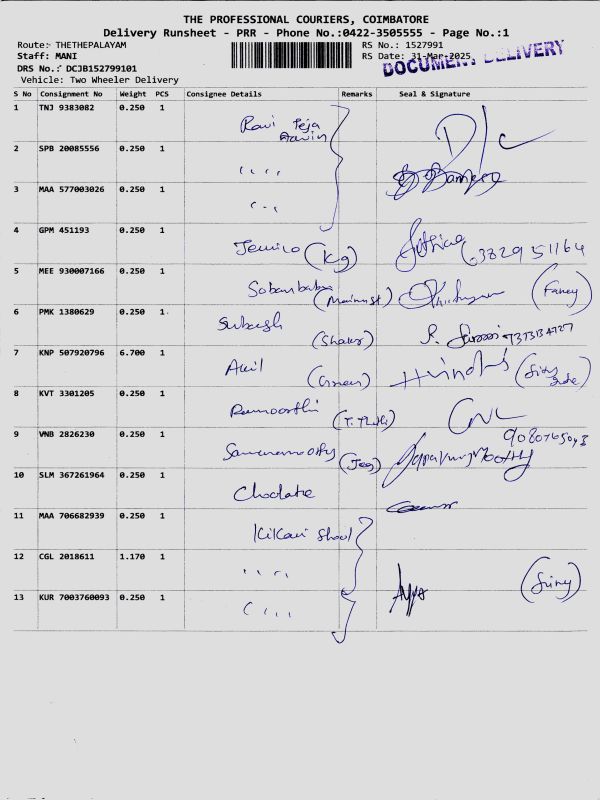 THE PROFESSIONAL COURIERS, COIMBATORE
Delivery Runsheet - PRR - Phone No.:0422-3505555 - Page No.:1
Route: THETHEPALAYAM RS No.: 1527991
Staff: MANI RS Date: 31-Mar-2025
DOCUMENT DELIVERY
DRS No.: DCJB152799101
Vehicle: Two Wheeler Delivery
S No Consignment No Weight PCS Consignee Details Remarks Seal & Signature
1 TNJ 9383082 0.250 1 Ravi Teja
D/c
2 SPB 20085556 0.250 1 ,,,,
3 MAA 577003026 0.250 1
4 GPM 451193 0.250 1 (Kg)
5 MEE 930007166 0.250 1 (Fancy)
6 PMK 1380629 0.250 1 Subash
7 KNP 507920796 6.700 1 Anil
8 KVT 3301205 0.250 1 Ramoorthi
9 VNB 2826230 0.250 1
10 SLM 367261964 0.250 1 Choclate
11 MAA 706682939 0.250 1 Kikani Shool
12 CGL 2018611 1.170 1 ,,,,
13 KUR 7003760093 0.250 1 ,,,,